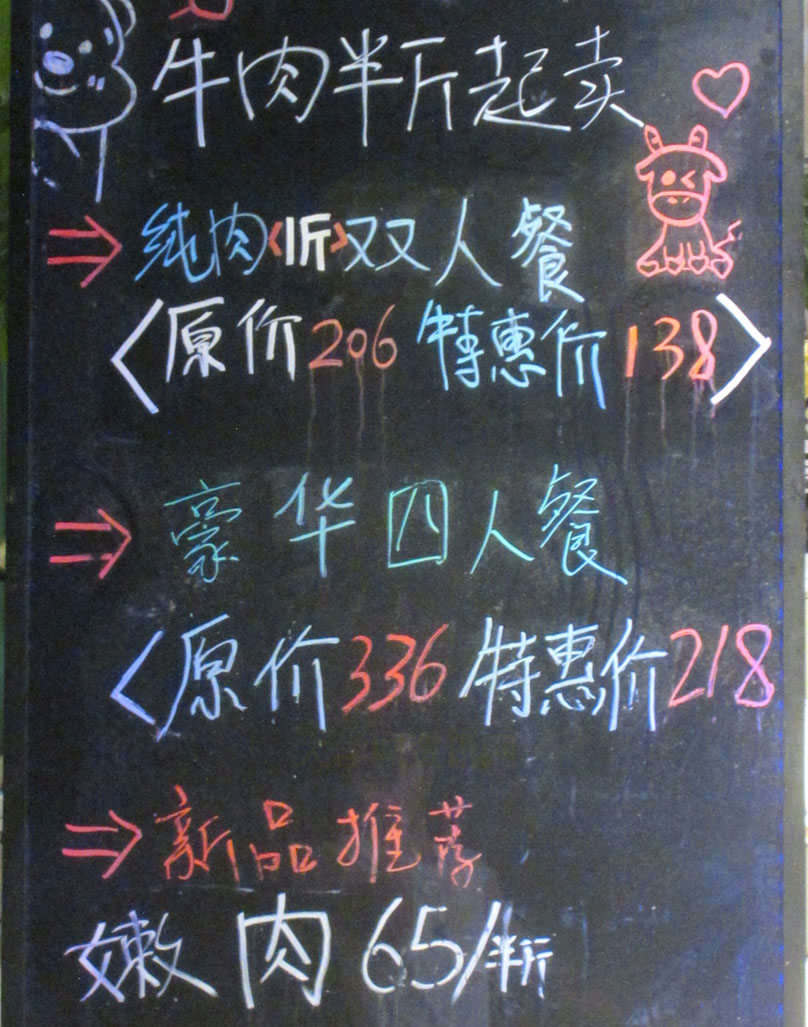 牛肉半斤起卖
纯肉<1斤>双人餐
<原价206 特惠价138>
豪华四人餐
<原价336 特惠价218
新品推荐
嫩肉65/半斤